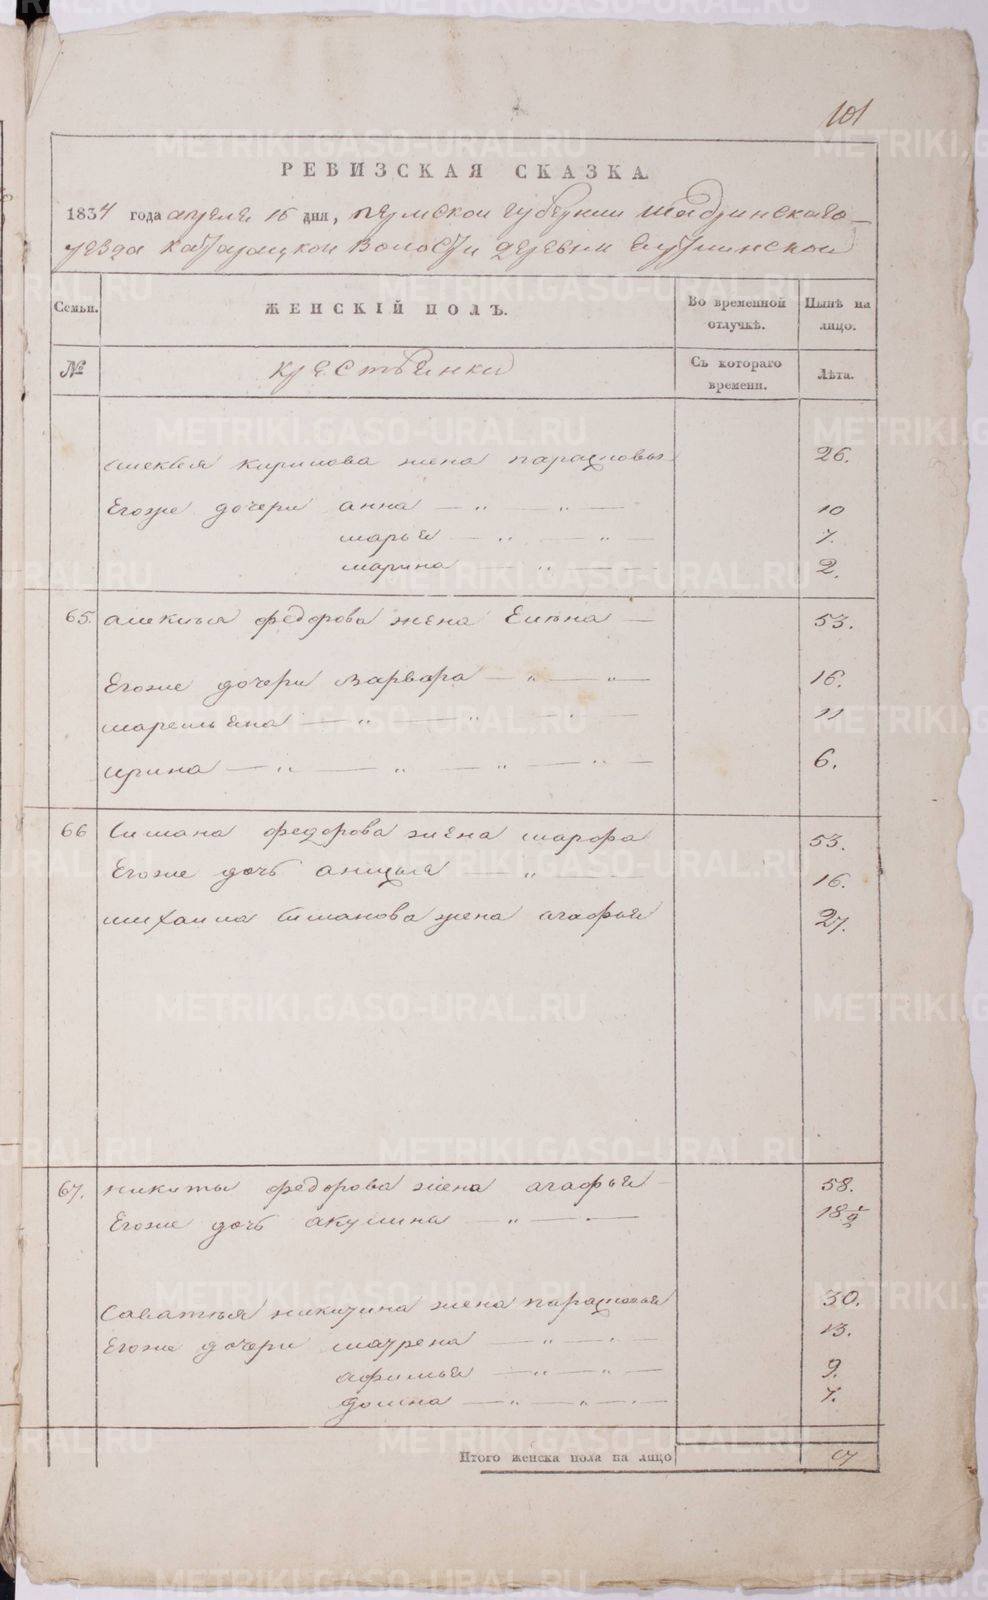 101
РЕВИЗСКАЯ СКАЗКА.
1834 года апреля 16 дня, пермской губернии Шадринскаго
уезда Катарацкой Волости деревни
Семьи. ЖЕНСКІЙ ПОЛЪ. Во временной отлучкѣ. Нынѣ на лицо.
№ крестьянки Съ котораго времени. Лѣта.
алексея кирилова жена парасковья 26.
Егоже дочери анна — „ — „ — 10
марья — „ — „ — 7.
марина — „ — 2.
65. алексея федорова жена Елена — 53.
Егоже дочери варвара — „ — „ — 16.
маремьяна — „ — „ — „ — 11
ирина — „ — „ — „ — „ — 6.
66 Симана федорова жена марфа 53.
Егоже дочь анисья — „ — 16.
михаила Симанова жена агафья 27.
67. никиты федорова жена агафья — 58.
Егоже дочь акулина — „ — 18 1/2
Саватея никитина жена парасковья 30.
Егоже дочери матрена — „ — 13.
афимья — „ — „ — 9.
домна — „ — „ — 7.
Итого женска пола на лицо 17
METRIKI.GASO-URAL.RU